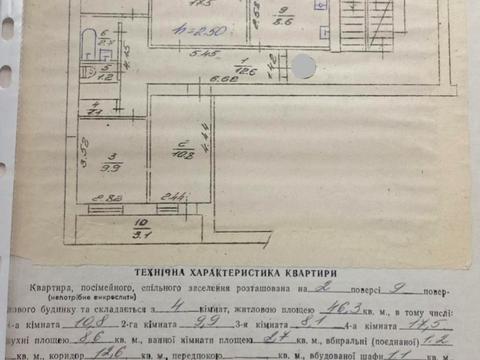 17.5
9
8.6
2.58
h=2.50
6
2.7
5
1.2
4.15
5.45
1
12.6
1.42
6.62
4
1.1
3.52
3
9.9
2
10.8
4.44
2.82
2.44
10
3.1
ТЕХНІЧНА ХАРАКТЕРИСТИКА КВАРТИРИ
Квартира, посімейного, спільного заселення розташована на 2 поверсі 9 повер-
(непотрібне викреслити)
хового будинку та складається з 4 кімнат, житловою площею 46,3 кв. м, в тому числі:
1-а кімната 10,8 2-га кімната 9,9 3-я кімната 8,1 4-та кімната 17,5
кухні площею 8,6 кв. м, ванної кімнати площею 2,7 кв. м, вбиральні (поєднаної) 1.2
кв. м, коридор 12,6 кв. м, передпокою кв. м, вбудованої шафи 1.1 кв. м